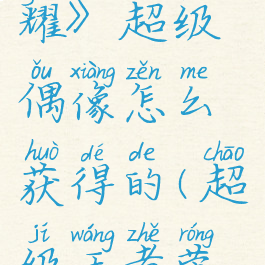 耀》超级
ǒu xiàng zěn me
偶像怎么
huò dé de chāo
获得的(超
jí wáng zhě róng
级王者荣